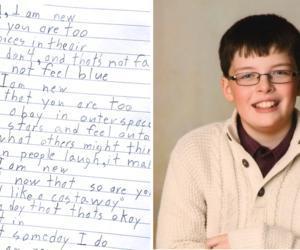 I, I am new
you are too
oices in the air
don't, and that's not fa
not feel blue
I am new
that you are too
a boy in outerspace
stars and feel outa
what others might thin
n people laugh, it ma
I am new
now that so are you
l like a castaway
day that thats okay
it in
t someday I do